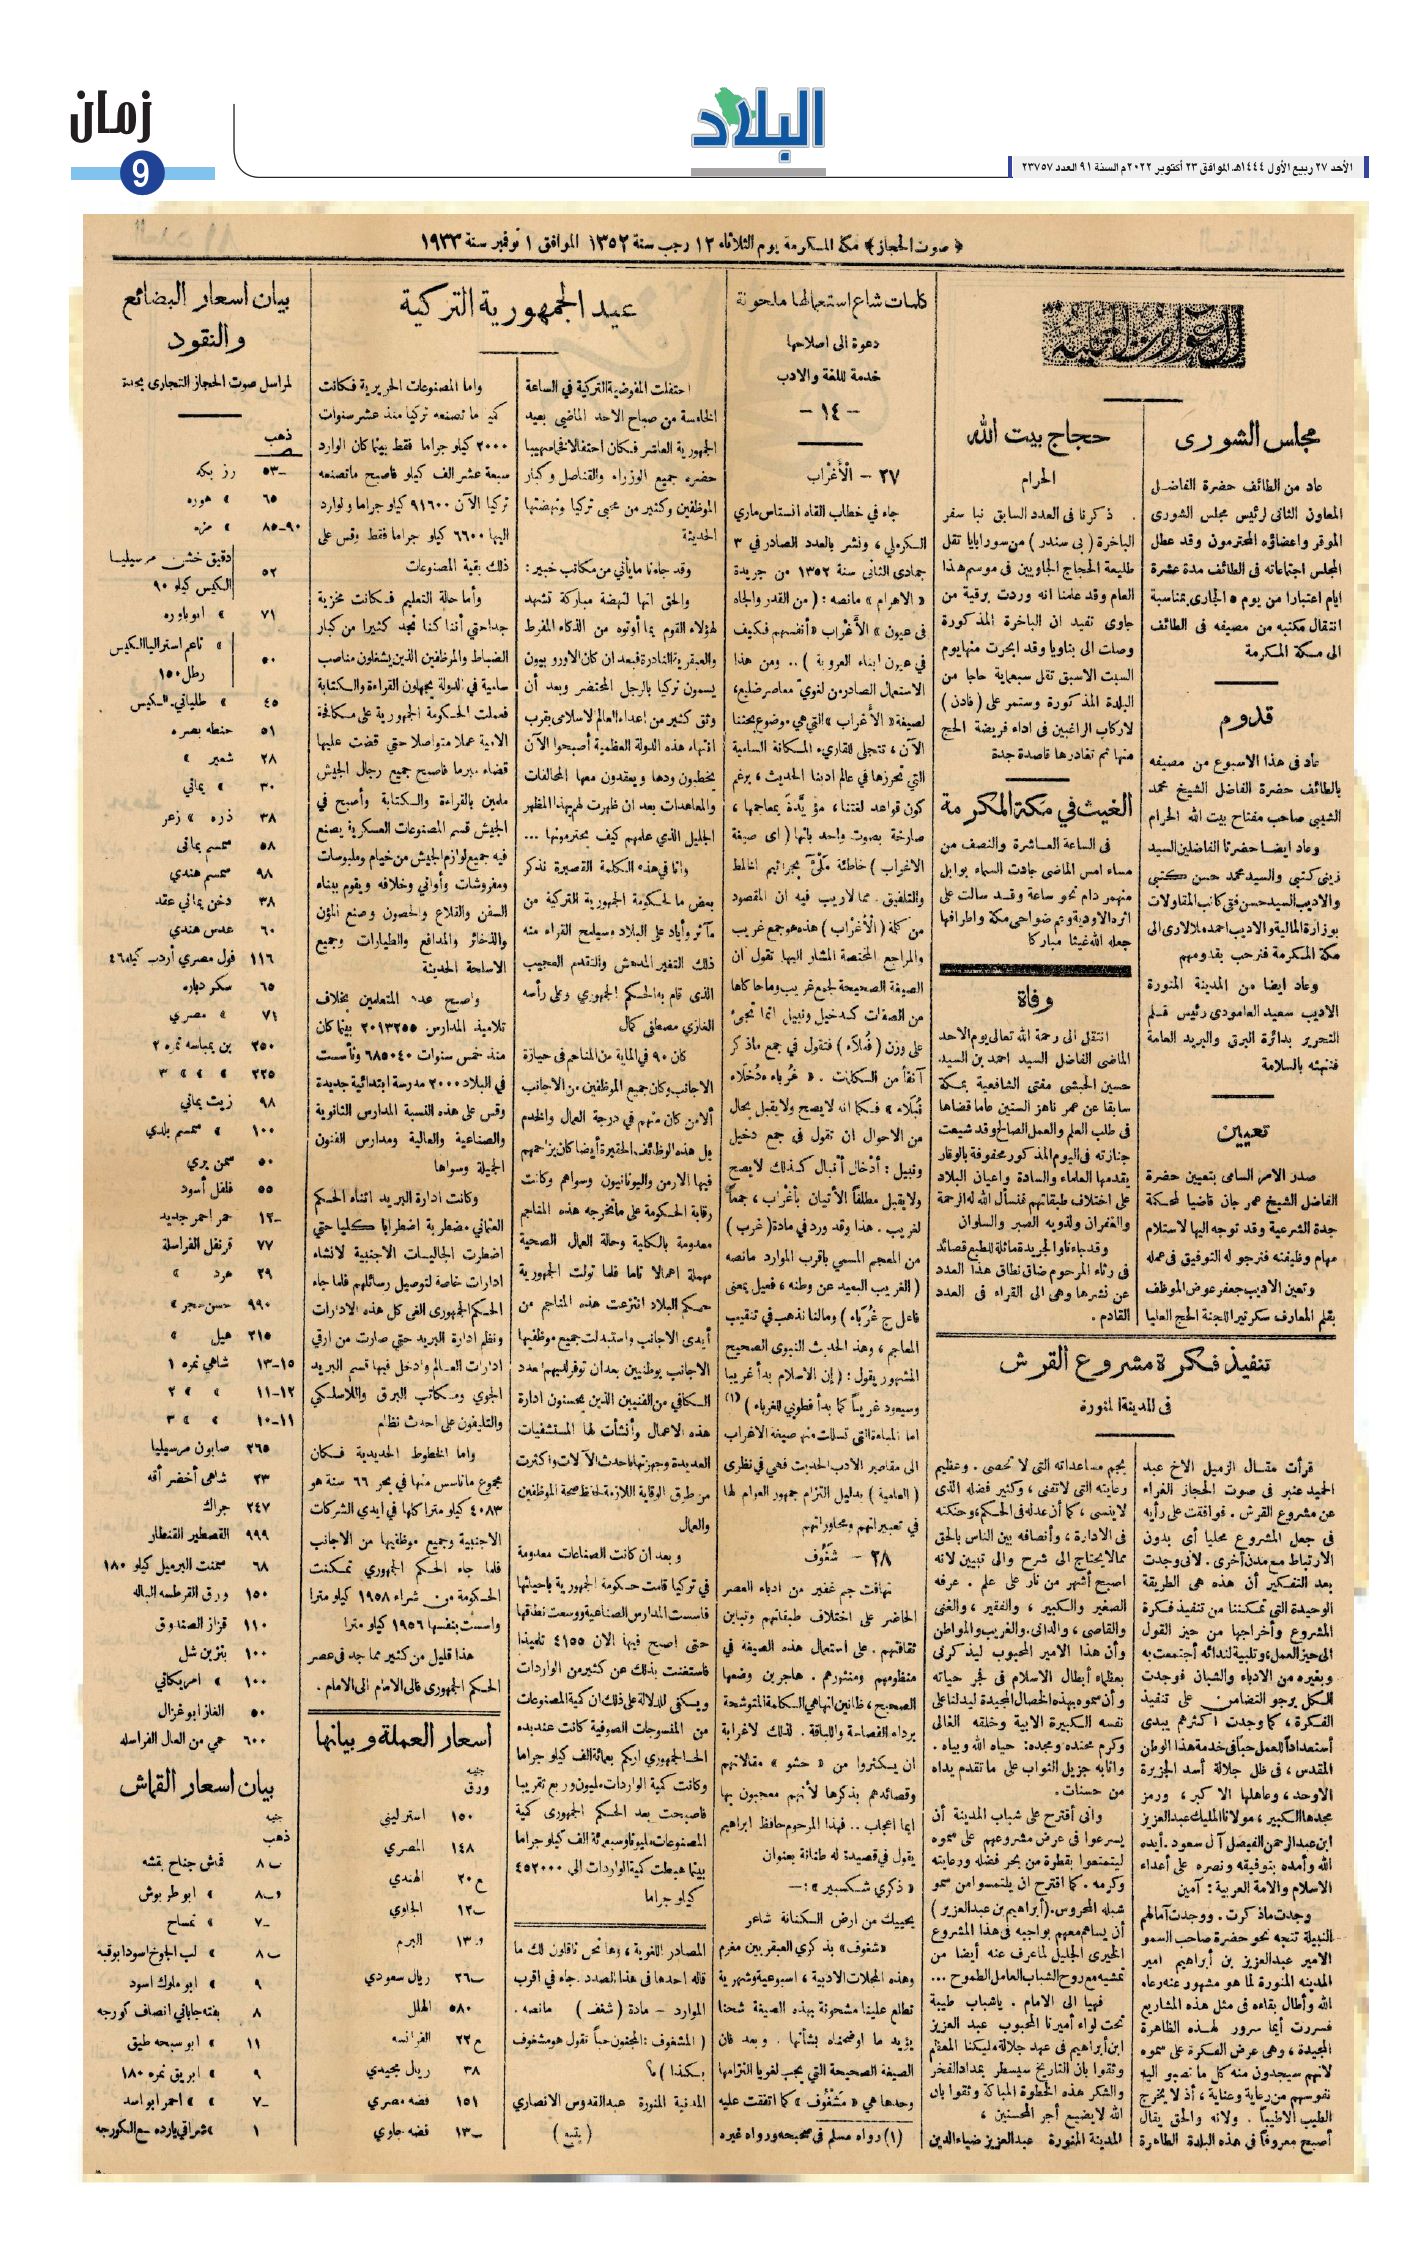 زمان
9
البلاد
الأحد ٢٧ ربيع الأول ١٤٤٤هـ الموافق ٢٣ أكتوبر ٢٠٢٢م السنة ٩١ العدد ٢٣٧٥٧
﴿ صوت الحجاز ﴾ مكة المكرمة يوم الثلاثاء ١٢ رجب سنة ١٣٥٢ الموافق ١ نوفمبر سنة ١٩٣٣
مجلس الشورى
عاد من الطائف حضرة الفاضل
المعاون الثانى لرئيس مجلس الشورى
الموقر واعضاؤه المحترمون وقد عطل
المجلس اجتماعاته فى الطائف مدة عشرة
ايام اعتبارا من يوم ٥ الجارى بمناسبة
انتقال مكتبه من مصيفه فى الطائف
الى مكة المكرمة
قدوم
عاد فى هذا الاسبوع من مصيفه
بالطائف حضرة الفاضل الشيخ محمد
الشيبى صاحب مفتاح بيت الله الحرام
وعاد ايضا حضرتا الفاضلين السيد
زينى كتبى والسيد محمد حسن كتبى
والاديب السيد حسن فتى كاتب المقاولات
بوزارة المالية والاديب احمد ملالارى الى
مكة المكرمة فنرحب بقدومهم
وعاد ايضا من المدينة المنورة
الاديب سعيد العامودى رئيس قلم
التحرير بدائرة البرق والبريد العامة
فنهنئه بالسلامة
تعيين
صدر الامر السامى بتعيين حضرة
الفاضل الشيخ عمر جان قاضيا لمحكمة
جدة الشرعية وقد توجه اليها لاستلام
مهام وظيفته فنرجو له التوفيق فى عمله
وتعين الاديب جعفر عوض الموظف
بقلم المعارف سكرتيرا للجنة الحج العليا
حجاج بيت الله
الحرام
ذكرنا فى العدد السابق نبا سفر
الباخرة ( بى سندر ) من سورابايا تقل
طليعة الحجاج الجاويين فى موسم هذا
العام وقد علمنا انه وردت برقية من
جاوى تفيد ان الباخرة المذكورة
وصلت الى بتاويا وقد ابحرت منها يوم
السبت الاسبق تقل سبعماية حاجا من
البلدة المذكورة وستمر على ( فادن )
لاركاب الراغبين فى اداء فريضة الحج
منها ثم تغادرها قاصدة جدة
الغيث في مكة المكرمة
فى الساعة العاشرة والنصف من
مساء امس الماضى جادت السماء بوابل
منهمر دام نحو ساعة وقد سالت على
اثره الاودية وعم ضواحى مكة واطرافها
جعله الله غيثا مباركا
وفاة
انتقل الى رحمة الله تعالى يوم الاحد
الماضى الفاضل السيد احمد بن السيد
حسين الحبشى مفتى الشافعية بمكة
سابقا عن عمر ناهز الستين عاما قضاها
فى طلب العلم والعمل الصالح وقد شيعت
جنازته فى اليوم المذكور محفوفة بالوقار
يقدمها العلماء والسادة واعيان البلاد
على اختلاف طبقاتهم فنسأل الله له الرحمة
والغفران ولذويه الصبر والسلوان
وقد جاءنا والجريدة ماثلة للطبع قصائد
فى رثاء المرحوم ضاق نطاق هذا العدد
عن نشرها وهى الى القراء فى العدد
القادم .
تنفيذ فكرة مشروع القرش
فى المدينة المنورة
قرأت مقال الزميل الاخ عبد
الحميد عنبر فى صوت الحجاز الغراء
عن مشروع القرش . فوافقت على رأيه
فى جعل المشروع محليا أى بدون
الارتباط مع مدن أخرى . لانى وجدت
بعد التفكير أن هذه هى الطريقة
الوحيدة التى تمكننا من تنفيذ فكرة
المشروع وأخراجها من حيز القول
الى حيز العمل ، وتلبية لندائه أجتمعت به
وبغيره من الادباء والشبان فوجدت
الكل يرجو التضامن على تنفيذ
الفكرة ، كما وجدت أكثرهم يبدى
أستعدادا للعمل حبا فى خدمة هذا الوطن
المقدس ، فى ظل جلالة أسد الجزيرة
الاوحد ، وعاهلها الاكبر ، ورمز
مجدها الكبير ، مولانا الملك عبد العزيز
ابن عبد الرحمن الفيصل آل سعود . أيده
الله وأمده بتوفيقه ونصره على أعداء
الاسلام والامة العربية : آمين
وجدت ماذكرت . ووجدت آمالهم
النبيلة تتجه نحو حضرة صاحب السمو
الامير عبد العزيز بن أبراهيم امير
المدينه المنورة لما هو مشهور عنه رعاه
الله وأطال بقاءه فى مثل هذه المشاريع
فسررت أيما سرور لهذه الظاهرة
المجيدة ، وهى عرض الفكرة على سموه
لانهم سيجدون منه كل ما تصبو اليه
نفوسهم من رعاية وعناية ، أذ لا يخرج
الطيب الاطيبا . ولانه والحق يقال
أصبح معروفا فى هذه البلدة الطاهرة
بجم مساعداته التى لا تحصى . وعظيم
رعايته التى لاتفنى ، وكثير فضله الذى
لاينسى ، كما أن عدله فى الحكم ، وحنكته
فى الادارة ، وأنصافه بين الناس بالحق
مما لايحتاج الى شرح والى تبيين لانه
اصبح أشهر من نار على علم . عرفه
الصغير والكبير ، والفقير ، والغنى
والقاصى ، والدانى . والغريب والمواطن
وأن هذا الامير المحبوب ليذكرنى
بعظماء أبطال الاسلام فى فجر حياته
وأن سموه بهذه الخصال المجيدة ليدلنا على
نفسه الكبيرة الابية وخلقه الغالى
وكرم محتده ومجده : حياه الله وبياه .
واثابه جزيل الثواب على ما تقدم يداه
من حسنات .
وانى أقترح على شباب المدينة أن
يسرعوا فى عرض مشروعهم على سموه
ليتمتعوا بقطرة من بحر فضله ورعايته
وكرمه . كما اقترح ان يلتمسوا من سمو
شبله المحروس . ( أبراهيم بن عبد العزيز )
أن يساهم معهم بواجبه فى هذا المشروع
الخيرى الجليل لما عرف عنه أيضا من
تمشيه مع روح الشباب العامل الطموح ...
فهيا الى الامام . ياشباب طيبة
تحت لواء أميرنا المحبوب عبد العزيز
ابن أبراهيم فى عهد جلالة مليكنا المعظم
وثقوا بان التاريخ سيسطر بمداد الفخر
والشكر هذه الخطوة المباركة وثقوا بان
الله لا يضيع أجر المحسنين ،
المدينة المنورة عبد العزيز ضياء الدين
كلمات شاع استعمالها ملحونة
دعوة الى اصلاحها
خدمة للغة والادب
— ١٤ —
٢٧ — الْأَغْراب
جاء في خطاب القاه انستاس ماري
الكرملي ، ونشر بالعدد الصادر في ٣
جمادى الثانى سنة ١٣٥٢ من جريدة
« الاهرام » مانصه : ( من القدر والجاه
فى عيون « الأغراب » أنفسهم فكيف
في عيون ابناء العروبة ) .. ومن هذا
الاستعمال الصادر من لغوي معاصر ضليع ،
لصيغة « الأغراب » التي هي موضوع بحثنا
الآن ، تتجلى للقارىء المكانة السامية
التي تحرزها في عالم ادبنا الحديث ، برغم
كون قواعد لغتنا ، مؤيَّدة بمعاجمها ،
صارخة بصوت واحد بانها ( اى صيغة
الاغراب ) خاطئة مَلْئَى بجراثيم الغلط
والتلفيق . مما لاريب فيه ان المقصود
من كلمة ( الْأغْراب ) هذه هو جمع غريب
والمراجع المختصة المشار اليها تقول ان
الصيغة الصحيحة لجمع غريب وما حاكاها
من الصفات كدخيل ونبيل انما تجئ
على وزن ( فُعَلاَء ) فتقول في جمع ما ذكر
آنفا من الكلمات . « غُرباء ، دُخَلاَء
نُبَلاَء » فكما انه لا يصح ولا يقبل بحال
من الاحوال ان تقول في جمع دخيل
ونبيل : أدْخال أنْبال كذلك لا يصح
ولا يقبل مطلقاً الأتيان بأَغْراب ، جمعاً
لغريب . هذا وقد ورد في مادة ( غرب )
من المعجم المسمى باقرب الموارد مانصه
( الغريب البعيد عن وطنه ، فعيل بمعنى
فاعل ج غُرَباء ) ومالنا نذهب في تنقيب
المعاجم ، وهذا الحديث النبوى الصحيح
المشهور يقول : ( إن الاسلام بدأ غريبا
وسيعود غريباً كما بدأ فطوبى للغرباء ) (١)
اما المباءة التى تسللت منها صيغة الاغراب
الى مقاصير الادب الحديث فهي في نظرى
( العامية ) بدليل التزام جمهور العوام لها
في تعبيراتهم ومحاوراتهم
٢٨ — شَغُوف
تهافت جم غفير من ادباء العصر
الحاضر على اختلاف طبقاتهم وتباين
ثقافتهم . على استعمال هذه الصيغة في
منظومهم ومنثورهم . هاجرين وضعها
الصحيح ، ظانين انها هي الكلمة المتوشحة
برداء الفصاحة واللباقة . لذلك لاغرابة
ان يكثروا من « حشو » مقالاتهم
وقصائدهم بذكرها لأنهم معجبون بها
ايما اعجاب .. فهذا المرحوم حافظ ابراهيم
يقول في قصيدة له طنانة بعنوان
« ذكري شكسبير » : —
يحييك من ارض الكنانة شاعر
« شغوف » بذكري العبقريين مغرم
وهذه المجلات الادبية ، اسبوعية وشهرية
تطلع علينا مشحونة بهذه الصيغة شحنا
يؤيد ما اوضحناه بشأنها . وبعد فان
الصيغة الصحيحة التي يجب لغويا التزامها
وحدها هي « مَشْغُوف » كما اتفقت عليه
(١) رواه مسلم فى صحيحه ورواه غيره
المصادر اللغوية ، وها نحن ناقلون لك ما
قاله احدها فى هذا الصدد . جاء في اقرب
الموارد — مادة ( شغف ) مانصه .
( المشغوف : المجنون حباً تقول هو مشغوف
بكذا ) ؟
المدينة المنورة عبد القدوس الانصاري
( يتبع )
عيد الجمهورية التركية
احتفلت المفوضية التركية في الساعة
الخامسة من صباح الاحد الماضي بعيد
الجمهورية العاشر فكان احتفالا فخما مهيبا
حضره جميع الوزراء والقناصل وكبار
الموظفين وكثير من محبي تركيا ونهضتها
الحديثة
وقد جاءنا ما يأتي من مكاتب خبير :
والحق انها لنهضة مباركة تشهد
لهؤلاء القوم بما أوتوه من الذكاء المفرط
والعبقرية النادرة فبعد ان كان الاوروبيون
يسمون تركيا بالرجل المحتضر وبعد أن
وثق كثير من اعداء العالم الاسلامى بقرب
انتهاء هذه الدولة العظمية أصبحوا الآن
يخطبون ودها ويعقدون معها المحالفات
والمعاهدات بعد ان ظهرت لهم بهذا المظهر
الجليل الذي علمهم كيف يحترمونها ...
وانا في هذه الكلمة القصيرة نذكر
بعض ما لحكومة الجمهورية التركية من
مآثر وأياد على البلاد وسيلمح القراء منه
ذلك التغير المدهش والتقدم العجيب
الذى قام به الحكم الجمهوري وعلى رأسه
الغازي مصطفى كمال
كان ٩٠ في الماية من المناجم فى حيازة
الاجانب وكان جميع الموظفين من الاجانب
ألامن كان منهم في درجة العمال والخدم
بل هذه الوظائف الحقيرة أيضا كان يزاحمهم
فيها الارمن واليونانيون وسواهم وكانت
رقابة الحكومة على ماتخرجه هذه المناجم
معدومة بالكلية وحالة العمال الصحية
مهملة اهمالا تاما فلما تولت الجمهورية
حكم البلاد انتزعت هذه المناجم من
أيدى الاجانب واستبدلت جميع موظفيها
الاجانب بوطنيين بعد ان توفر لديهم العدد
الكافي من الفنيين الذين يحسنون ادارة
هذه الاعمال وأنشأت لها المستشفيات
العديدة وجهزتها باحدث الآلات واكثرت
من طرق الوقاية اللازمة لحفظ صحة الموظفين
والعمال
وبعد ان كانت الصناعات معدومة
في تركيا قامت حكومة الجمهورية باحيائها
فاسست المدارس الصناعية ووسعت نطاقها
حتى اصبح فيها الان ٤١٥٥ تلميذا
فاستغنت بذلك عن كثير من الواردات
ويكفى للدلالة على ذلك ان كمية المصنوعات
من المنسوجات الصوفية كانت عند بدء
الحكم الجمهوري اربعمائة الف كيلو جراما
وكانت كمية الواردات مليون وربع تقريبا
فاصبحت بعد الحكم الجمهورى كمية
المصنوعات مليونا وسبعمائة الف كيلو جراما
بينما هبطت كمية الواردات الى ٤٥٢٠٠٠
كيلو جراما
واما المصنوعات الحريرية فكانت
كمية ما تصنعه تركيا منذ عشر سنوات
٢٠٠٠ كيلو جراما فقط بينما كان الوارد
سبعة عشر الف كيلو فاصبح ماتصنعه
تركيا الآن ٩١٦٠٠ كيلو جراما والوارد
اليها ٦٦٠٠ كيلو جراما فقط وقس على
ذلك بقية المصنوعات
وأما حالة التعليم فكانت مخزية
جدا حتي أننا كنا نجد كثيرا من كبار
الضباط والموظفين الذين يشغلون مناصب
سامية في الدولة يجهلون القراءة والكتابة
فعملت الحكومة الجمهورية على مكافحة
الامية عملا متواصلا حتي قضت عليها
قضاء مبرما فاصبح جميع رجال الجيش
ملمين بالقراءة والكتابة وأصبح في
الجيش قسم المصنوعات العسكرية يصنع
فيه جميع لوازم الجيش من خيام وملبوسات
ومفروشات وأواني وخلافه ويقوم ببناء
السفن والقلاع والحصون وصنع المؤن
والذخائر والمدافع والطيارات وجميع
الاسلحة الحديثة
واصبح عدد المتعلمين بخلاف
تلاميذ المدارس ٢٠١٣٢٥٥ بينما كان
منذ خمس سنوات ٦٨٥٠٤٠ وتأسست
في البلاد ٢٠٠٠ مدرسة ابتدائية جديدة
وقس على هذه النسبة المدارس الثانوية
والصناعية والعالية ومدارس الفنون
الجميلة وسواها
وكانت ادارة البريد اثناء الحكم
العثماني مضطربة اضطرابا كليا حتي
اضطرت الجاليات الاجنبية لانشاء
ادارات خاصة لتوصيل رسائلهم فلما جاء
الحكم الجمهورى الغى كل هذه الادارات
ونظم ادارة البريد حتي صارت من ارقي
ادارات العالم وادخل فيها قسم البريد
الجوي ومكاتب البرق واللاسلكي
والتليفون على احدث نظام
واما الخطوط الحديدية فكان
مجموع ماتاسس منها في بحر ٦٦ سنة هو
٤٠٨٣ كيلو مترا كلها في ايدى الشركات
الاجنبية وجميع موظفيها من الاجانب
فلما جاء الحكم الجمهوري تمكنت
الحكومة من شراء ١٩٥٨ كيلو مترا
واسست بنفسها ١٩٥٦ كيلو مترا
هذا قليل من كثير مما جد فى عصر
الحكم الجمهورى فالى الامام الى الامام .
اسعار العملة وبيانها
جنيه
ورق
١٥٠ استرليني
١٤٨ المصري
ع٢٠ الهندي
ب١٢ الجاوي
و١٣ البرم
ب٢٦ ريال سعودي
٥٨٠ الهلل
ع٢٢ الفرانسه
٣٨ ريال مجيدي
١٥١ فضه مصري
ب١٣ فضه جاوي
بيان اسعار البضائع
والنقود
لمراسل صوت الحجاز التجارى بجدة
ذهب
٥٣— رز بكه
٦٥ » هوره
٨٥-٩٠ » مزه
٥٢ دقيق خشن مرسيليا
الكيس كيلو ٩٠
٧١ » ابو باوره
٥٠ » ناعم استراليا الكيس
رطل ١٥٠
٤٥ » طلياني الكيس
٥١ حنطه بصره
٢٨ شعير »
٣٠ » يماني
٣٨ ذره » زعر
٥٨ سمسم يمانى
٩٨ سمسم هندي
٣٨ دخن يماني عقد
٦٠ عدس هندي
١١٦ فول مصري أردب كيله ٤٦
٦٥ سكر دباره
٧١ » مصري
٢٥٠ بن بمباسه نمره ٢
٢٢٥ » » » ٣
٩٨ زيت يماني
١٠٠ » سمسم بلدي
٥٠ سمن بري
٥٥ فلفل أسود
١٢— حمر احمر جديد
٧٧ قرنفل الفراسلة
٢٩ هرد »
٩٩٠ »
٢١٥ هيل »
١٣-١٥ شاهي نمره ١
١١-١٢ » » ٢
١٠-١١ » » ٣
٢٦٥ صابون مرسيليا
٢٣ شاهى أخضر أقه
٢٤٧ جراك
٩٩٩ القصطير القنطار
٦٨ سمنت البرميل كيلو ١٨٠
١٥٠ ورق القرطسه الباله
١١٠ قزاز الصندوق
١٠٠ بنزين شل
١٠٠ » امريكاني
٥٠ الغاز ابو غزال
٦٠٠ حمي من المال الفراسله
بيان اسعار القماش
جنيه
ذهب
ب٨ قماش جناح بقشه
وب٨ » ابو طربوش
٧— » تمساح
ب٨ » لب الجوخ اسود ابو قبه
٩ » ابو ملوك اسود
٨ بفته جاباني انصاف كورجه
١١ » ابو سبحه طيق
٩ » ابريق نمره ١٨٠
٧— » » احمر ابو اسد
١ »